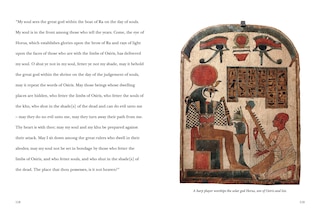 "My soul sees the great god within the boat of Ra on the day of souls.
My soul is in the front among those who tell the years. Come, the eye of
Horus, which establishes glories upon the brow of Ra and rays of light
upon the faces of those who are with the limbs of Osiris, has delivered
my soul. O shut ye not in my soul, fetter ye not my shade; may it behold
the great god within the shrine on the day of the judgement of souls,
may it repeat the words of Osiris. May those beings whose dwelling
places are hidden, who fetter the limbs of Osiris, who fetter the souls of
the khu, who shut in the shade(s) of the dead and can do evil unto me
– may they do no evil unto me, may they turn away their path from me.
Thy heart is with thee; may my soul and my khu be prepared against
their attack. May I sit down among the great rulers who dwell in their
abodes; may my soul not be set in bondage by those who fetter the
limbs of Osiris, and who fetter souls, and who shut in the shade(s) of
the dead. The place that thou possessest, is it not heaven?"
A harp player worships the solar god Horus, son of Osiris and Isis